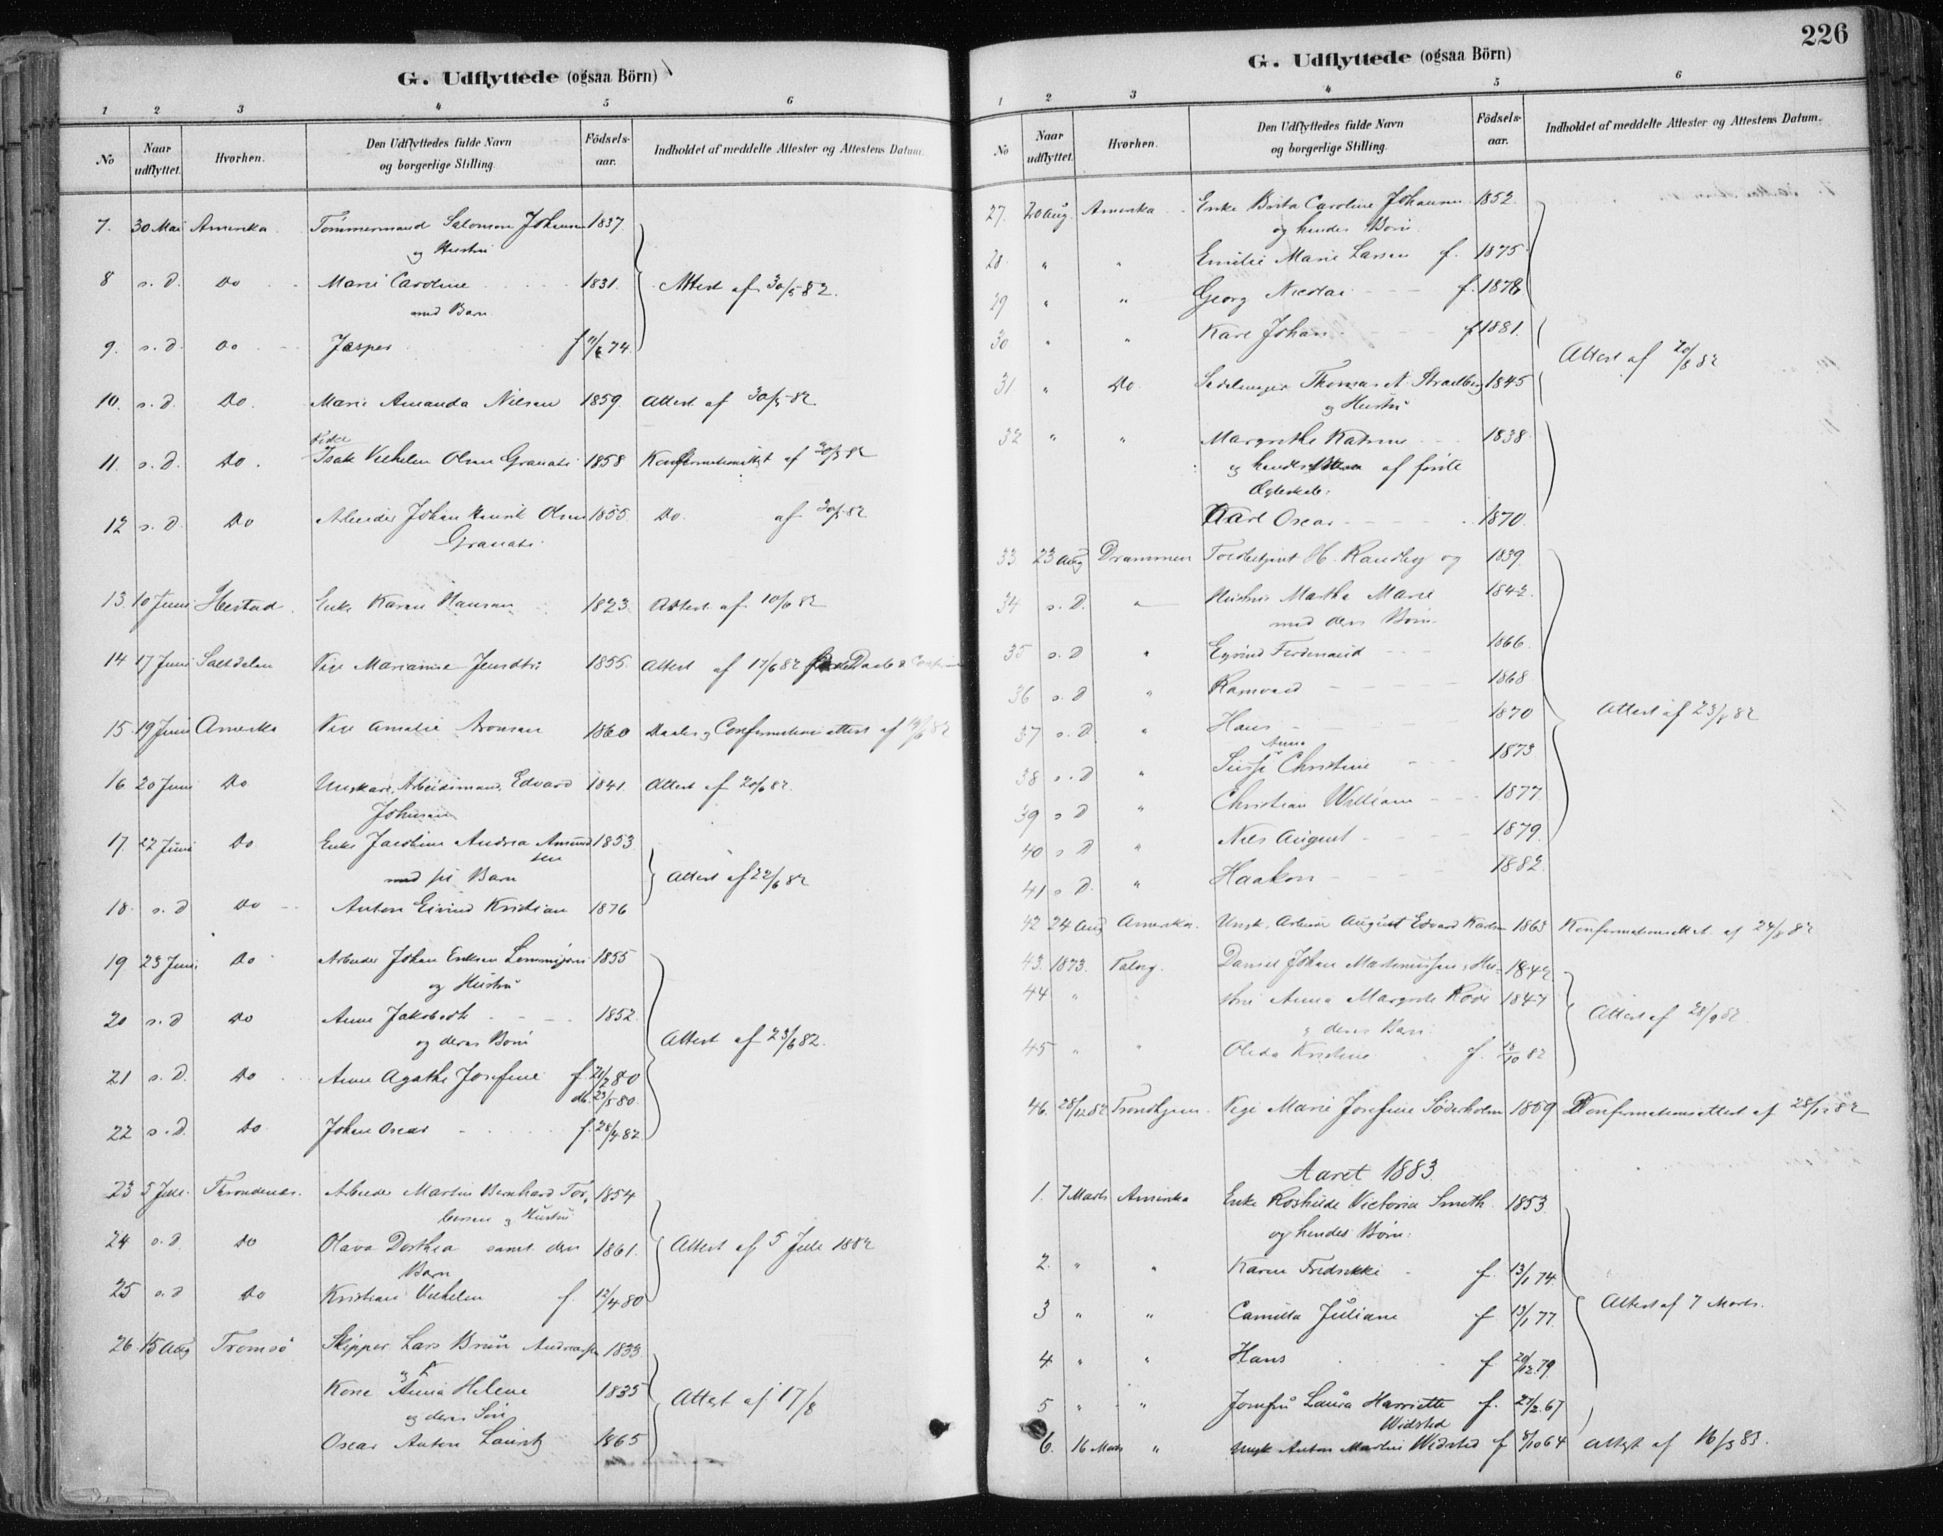 G. Udflyttede (ogsaa Börn)
1 2 3 4 5 6
No Naar udflyttet. Hvorhen. Den Udflyttedes fulde Navn og borgerlige Stilling. Födsels-aar. Indholdet af meddelte Attester og Attestens Datum.
7. 30 Mai Amerika Tømmermand Salomon Johansen 1837
og Hustru
8 s. d. Do Marie Caroline 1831. Attest af 30/5 82.
med Barn
9. s. d. Do Jesper f 74.
10. s. d. Do. Marie Amanda Nilsen 1859. Attest af 30/5 82
11. s. d. Do. Isak Vilhelm Olsen Granati 1858 af 30/5 82
12 s. d. Do Arbeider Johan Henrik Olsen 1855. Do. af 30/5 82
Granati
13. 10 Juni Enke Karen Hansen 1823. Attest af 10/6 82
14 17 Juni Saltdalen Pige Marianne 1855. Attest af 17/6 82
15 19 Juni Amerika Pige Amalie Aronsen 1860 Daabs og Confirmations attest af 19/6 82
16 20 Juni Do Ungkarl, Arbeidsmand, Edvard 1841. Attest af 20/6 82.
Johnsen
17. 22 Juni Do Enke Jacobine Andrea Amund 1853
sen
med sit Barn Attest af 22/6 82
18. s. d Do Anton Eivind Kristian 1876
19 23 Juni Do Arbeider Johan Eriksen 1855
og Hustru
20 s. d Do Anne Jakobedth 1852.
og deres Børn Attest af 23/6 82.
21 s. D. Do Anne Agathe Josefine f. 21/2 80
db. 23/5 80.
22 s. D. Do Johan Oscar f. 28/4 82.
23 5 Juli. Throndenes. Arbeider Martin Bernhard Tor- 1854
bersen og Hustru
24 s. d. Do Olava Dorthea samt deres 1861. Attest af 5 Juli 1882
Barn
25 s. d Do Kristian Vilhelm f. 12/4 80
26 15 Aug Tromsø Skipper Lars Bruun Andreassen 1833
og
Kone Anna Helene 1835 Attest af 17/8
og deres Søn
Oscar Anton Lauritz 1865
226
G. Udflyttede (ogsaa Börn)
1 2 3 4 5 6
No Naar udflyttet. Hvorhen. Den Udflyttedes fulde Navn og borgerlige Stilling. Födsels-aar. Indholdet af meddelte Attester og Attestens Datum.
27. 20 Aug. Amerika Enke Berta Caroline Johansen 1852.
og hendes Børn
28 " " Emilie Marie Larsen f. 1875
29 " " Georg Nicolai f. 1878
30 " " Karl Johan f 1881.
Attest af 20/8 82
31 " Do. Sadelmager Thomas 1845
og Hustru
32 " " Margrethe Katrine 1838.
og hendes Børn af første
Ægteskab:
Karl Oscar 1870.
33. 23 Aug Drammen Toldbetjent H. Randby og 1839.
34 s. D. " Hustru Martha Marie 1842.
med deres Børn.
35 s. D " Eyvind Ferdinand 1866
36 s. D " Ramvald 1868
37 s. D " Hans 1870 Attest af 23/8 82
Anna
38 s. D " Christine 1873
39 s D " Christian William 1877.
40 s D " Nils August 1879.
41 s D. " Haakon 1882.
42 24 Aug Amerika. Ungk. Arbeider August Edvard 1863 Konfirmationsattest af 24/8 82
43. 1873. Daniel Johan Martinussen, Hu- 1842
44 " " stru Anna Margrete 1847
og deres Barn Attest af 28/9 82
45 " " Oleda Kristine f. 12/10 82
46. 28/12 82 Trondhjem. Pige Marie Josefine Søderholm 1869 Konfirmationsattest af 28/12 82
Aaret 1883.
1. 7 Marts Amerika Enke Roskilde Victoria Smith. 1853.
og hendes Børn:
2. " " Karen Fredrikke f. 13/1 74.
3 " " Camilla Juliane f 13/1 77. Attest af 7 Marts.
4 " " Hans f 20/12 79
5 " " Jomfru Laura Harriette f. 27/2 67
Widsted
6. 16 Marts " Ungk Anton Martin Widsted f 8/10 64 Attest af 16/3 83.